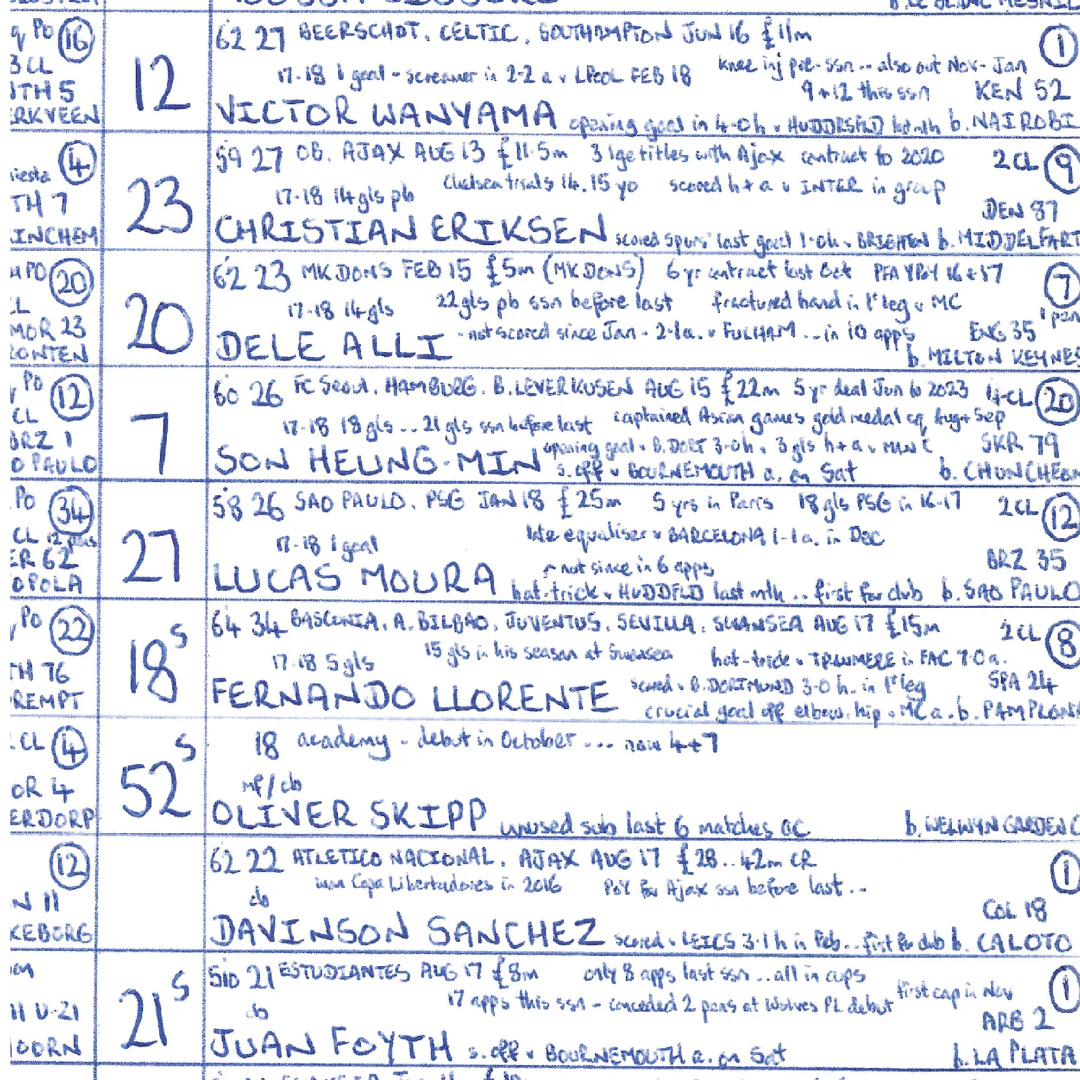 9 PO 16 62 27 BEERSCHOT, CELTIC, SOUTHAMPTON JUN 16 £11m 1
3 CL 12 17-18 1 goal - screamer in 2-2 a v LPOOL FEB 18 knee inj pre-ssn.. also out Nov-Jan
TH 5 9+12 this ssn KEN 52
ERKVEEN VICTOR WANYAMA opening goal in 4-0 h v HUDDRSFLD last mth b. NAIROBI
iesta 4 59 27 OB, AJAX AUG 13 £11.5m 3 lge titles with Ajax contract to 2020 2 CL 9
TH 7 23 17-18 14 gls pb Chelsea trials 14, 15 yo scored h+a v INTER in group
DEN 87
INCHEM CHRISTIAN ERIKSEN scored Spurs' last goal 1-0 h v BRIGHTEN b. MIDDELFART
PO 20 62 23 MK DONS FEB 15 £5m (MK DONS) 6 yr contract last Oct PFA YPOY 16+17 7
L 20 17-18 14 gls 22 gls pb ssn before last fractured hand in 1st leg v MC 1 pen
MOR 23 - not scored since Jan - 2-1 a. v FULHAM ... in 10 apps ENG 35
ONTEN DELE ALLI b. MILTON KEYNES
PO 12 60 26 FC Seoul, HAMBURG, B. LEVERKUSEN AUG 15 £22m 5 yr deal Jun to 2023 4 CL 20
CL 7 17-18 18 gls .. 21 gls ssn before last captained Asian games gold medal Aug + Sep
BRZ 1 opening goal v B. DORT 3-0 h. 3 gls h+a v MAN C SKR 79
O PAULO SON HEUNG-MIN s. off v BOURNEMOUTH a. on Sat b. CHUNCHEON
PO 34 58 26 SAO PAULO, PSG JAN 18 £25m 5 yrs in Paris 18 gls PSG in 16-17 2 CL 12
CL 12 pens 27 17-18 1 goal late equaliser v BARCELONA 1-1 a. in Dec
ER 62 not since in 6 apps BRZ 35
OPOLA LUCAS MOURA hat-trick v HUDDFLD last mth .. first for club b. SAO PAULO
PO 22 64 34 BASCONIA, A. BILBAO, JUVENTUS, SEVILLA, SWANSEA AUG 17 £15m 2 CL 8
TH 76 18 S 17-18 5 gls 15 gls in his season at Swansea hat-trick v TRANMERE in FAC 7-0 a.
REMPT FERNANDO LLORENTE scored v B. DORTMUND 3-0 h. in 1st leg SPA 24
crucial goal off elbow, hip v MC a. b. PAMPLONA
CL 4 52 S 18 academy - debut in October ... now 4+7
OR 4 mf/cb
ERDORP OLIVER SKIPP unused sub last 6 matches b. WELWYN GARDEN C
12 62 22 ATLETICO NACIONAL, AJAX AUG 17 £28..42m CR 1
won Copa Libertadores in 2016 PoY for Ajax ssn before last ...
N 11 cb COL 18
KEBORG DAVINSON SANCHEZ scored v LEICS 3-1 h in Feb .. first for club b. CALOTO
21 S 510 21 ESTUDIANTES AUG 17 £8m only 8 apps last ssn ... all in cups first cap in Nov 1
11 U-21 cb 17 apps this ssn - conceded 2 pens at Wolves PL debut ARG 2
OORN JUAN FOYTH s. off v BOURNEMOUTH a. on Sat b. LA PLATA